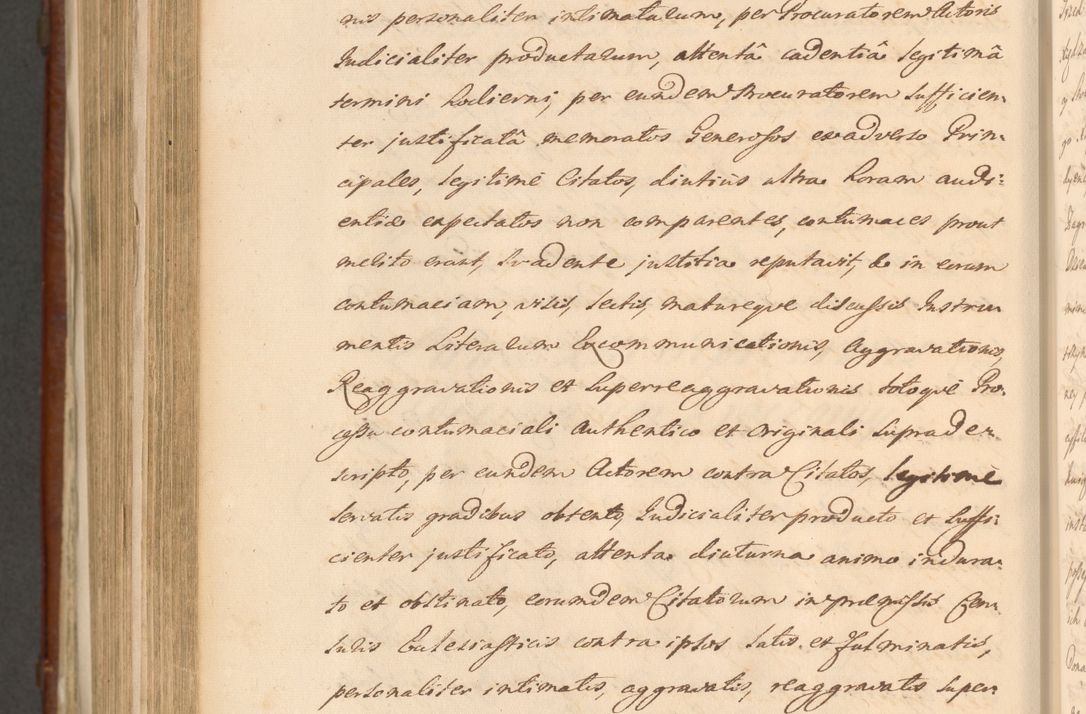 nis personaliter intimatarum, per Procuratorem Actoris
Judicialiter productarum, attentâ cadentiâ legitimâ
termini hodierni, per eundem Procuratorem sufficien-
ter justificatâ memoratos Generosos exadverso Prin-
cipales, legitimè Citatos, diutiùs ultra horam audi-
entiæ expectatos non comparentes, contumaces prout
merito erant, svadente justitia reputavit, & in eorum
contumaciam, visis, lectis, matureque discussis Instru-
mentis Literarum Excommunicationis, Aggravationis,
Reaggravationis et Superreaggravationis totoque Pro-
cessu contumaciali Authentico et originali suprade-
scripto, per eundem Actorem contra Citatos, legitimè
servatis gradibus obtento, Judicialiter producto et suffi-
cienter justificato, attenta diuturna animo indura-
to et obstinato, eorundem Citatorum in præmissis Cen-
suris Ecclesiasticis contra ipsos latis et fulminatis,
personaliter intimatis, aggravatis, reaggravatis super-